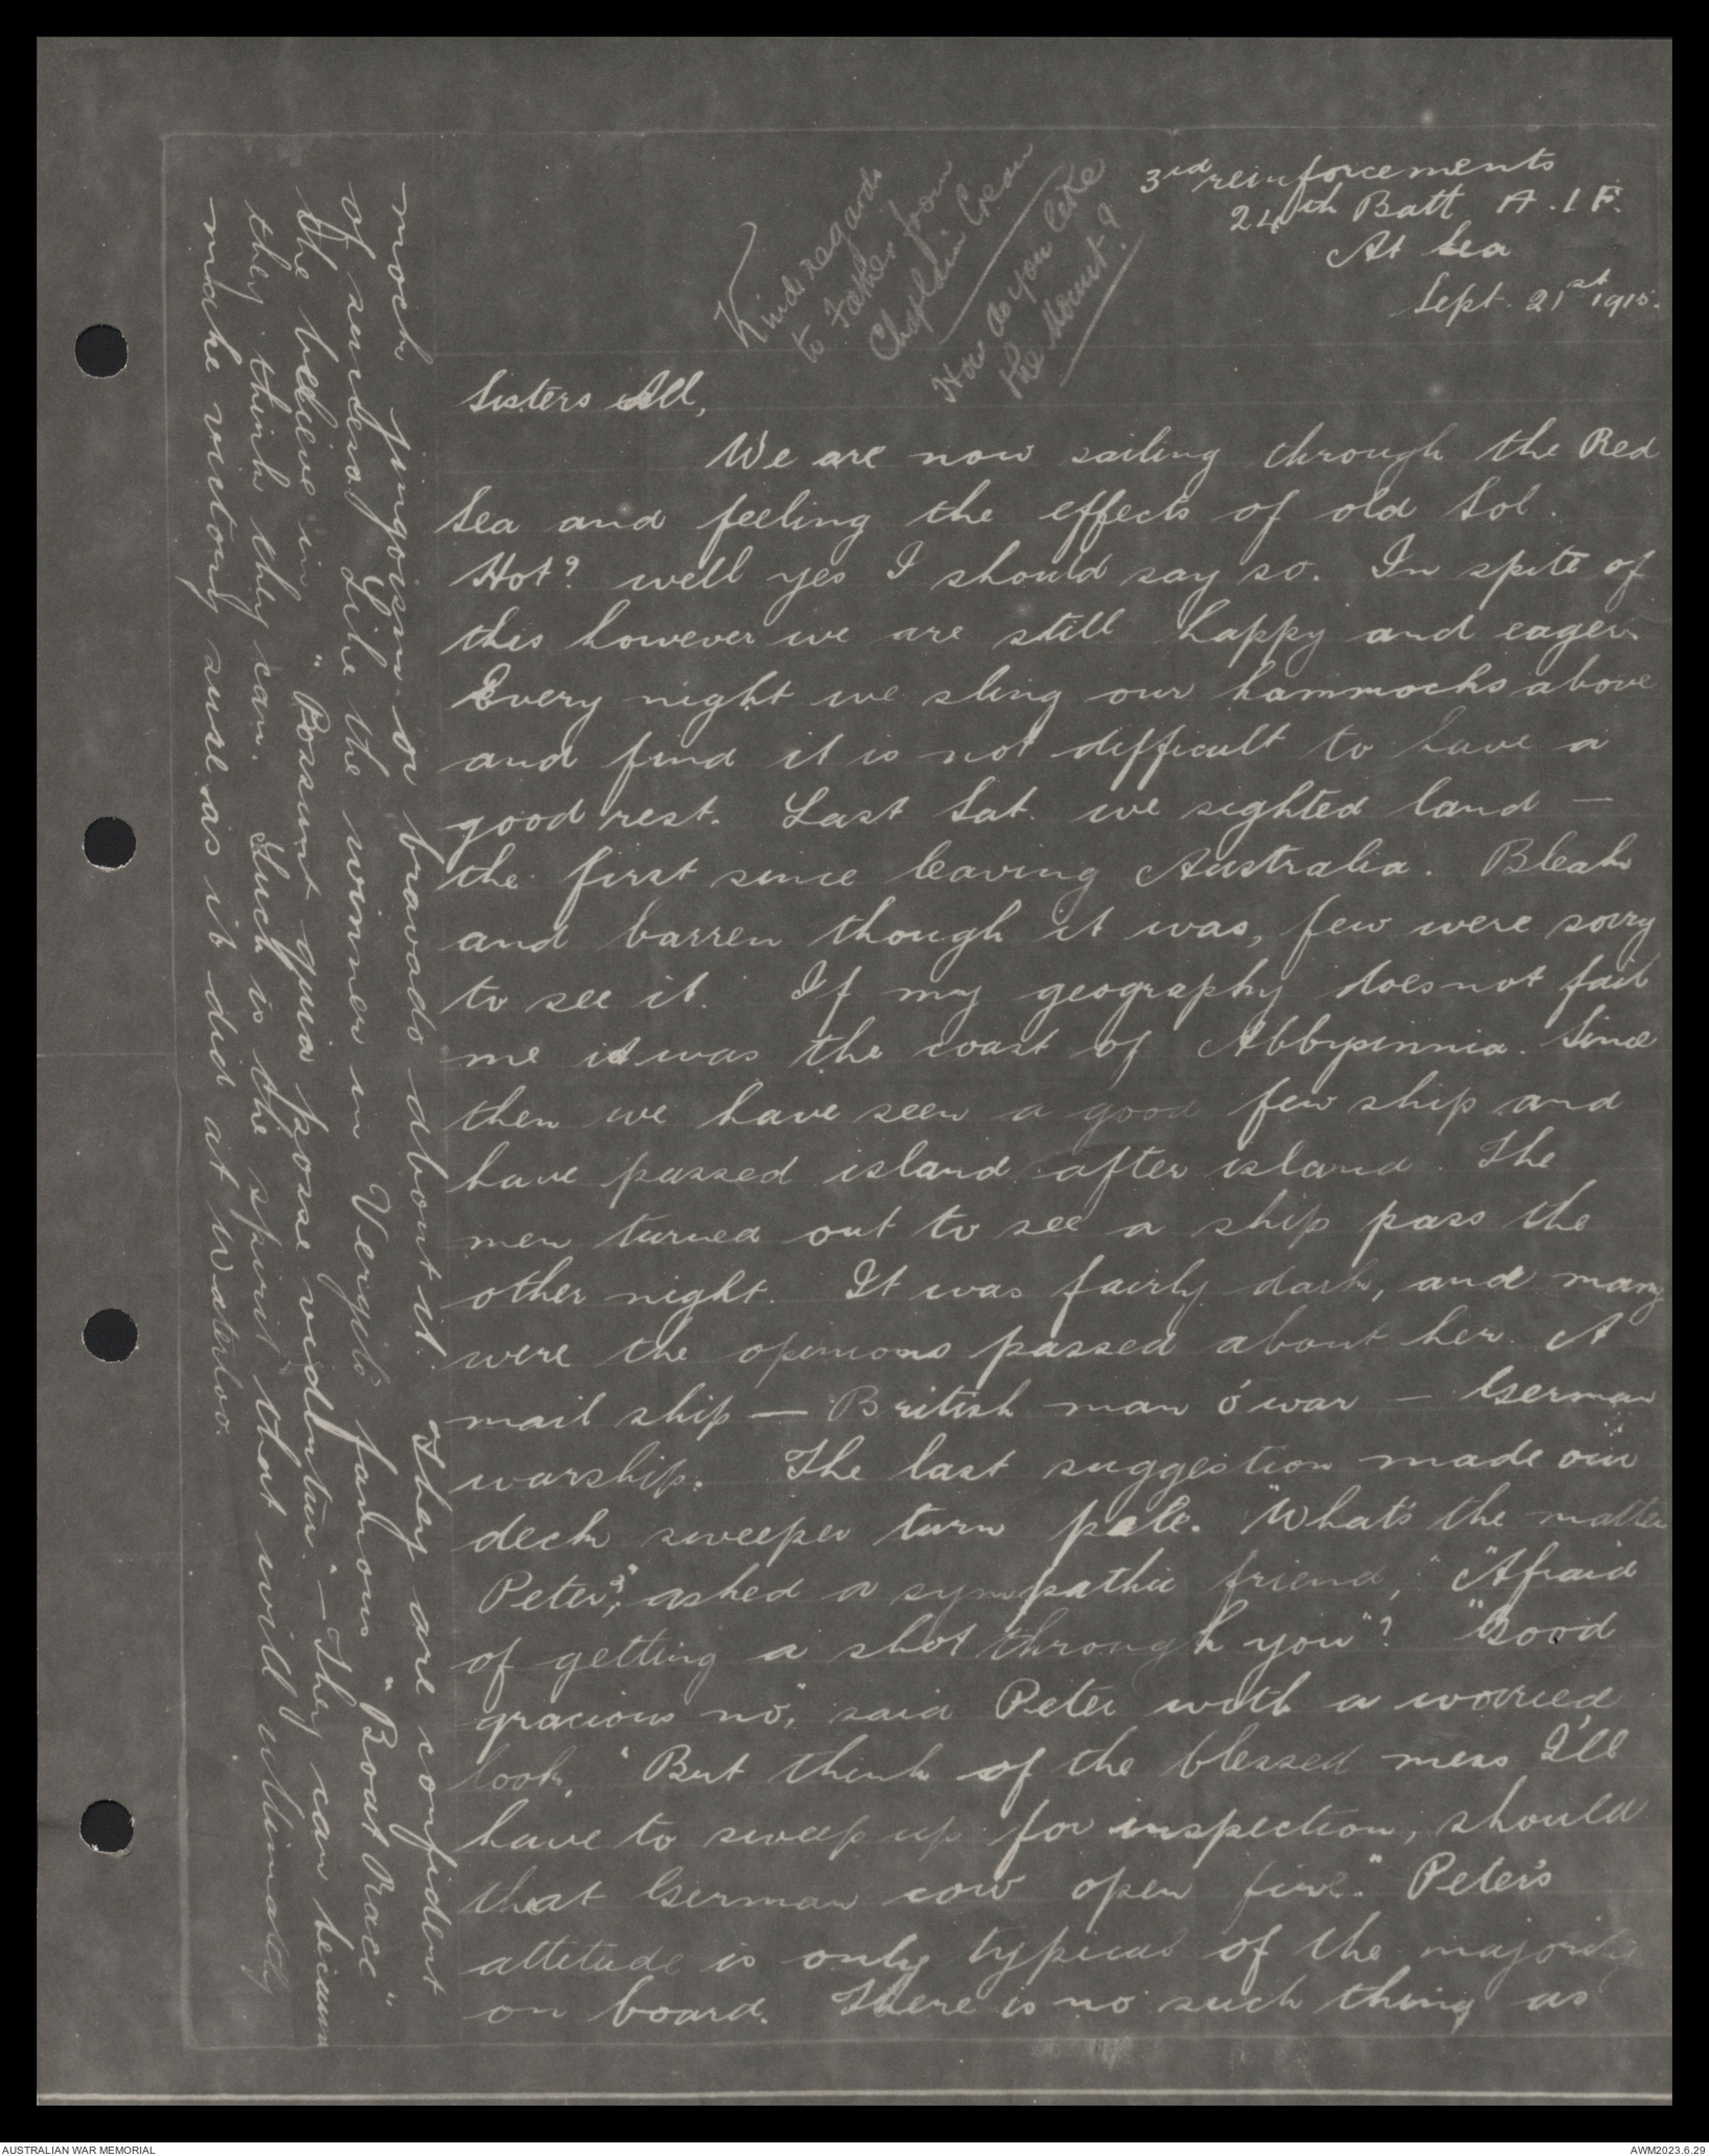 3rd reinforcements
24th Batt A.I.F.
At Sea
Sept. 21st 1915.
Kind regards
to Father from
Chaplain Crean
How do you like
the Mount?
Sisters All,
We are now sailing through the Red
Sea and feeling the effects of old Sol.
Hot? well yes I should say so. In spite of
this however we are still happy and eager.
Every night we sling our hammocks above
and find it is not difficult to have a
good rest. Last Sat. we sighted land —
the first since leaving Australia. Bleak
and barren though it was, few were sorry
to see it. If my geography does not fail
me it was the coast of Abbysinnia. Since
then we have seen a good few ship and
have passed island after island. The
men turned out to see a ship pass the
other night. It was fairly dark, and many
were the opinions passed about her. A
mail ship — British man o'war — German
warship. The last suggestion made our
deck sweeper turn pale. "What's the matter
Peter?", asked a sympathic friend, "Afraid
of getting a shot through you"? "Good
gracious no", said Peter with a worried
look, "But think of the blessed mess I'll
have to sweep up for inspection, should
that German cow open fire." Peter's
attitude is only typical of the majority
on board. There is no such thing as
mock jingoism or bravado about it. They are confident
of success. Like the winner in Vergil's famous "Boat Race"
he believe in "Possunt quia posse videntur" — They can because
they think they can. Such is the spirit that will ultimately
make victory sure as it did at Waterloo.
AUSTRALIAN WAR MEMORIAL
AWM2023.6.29